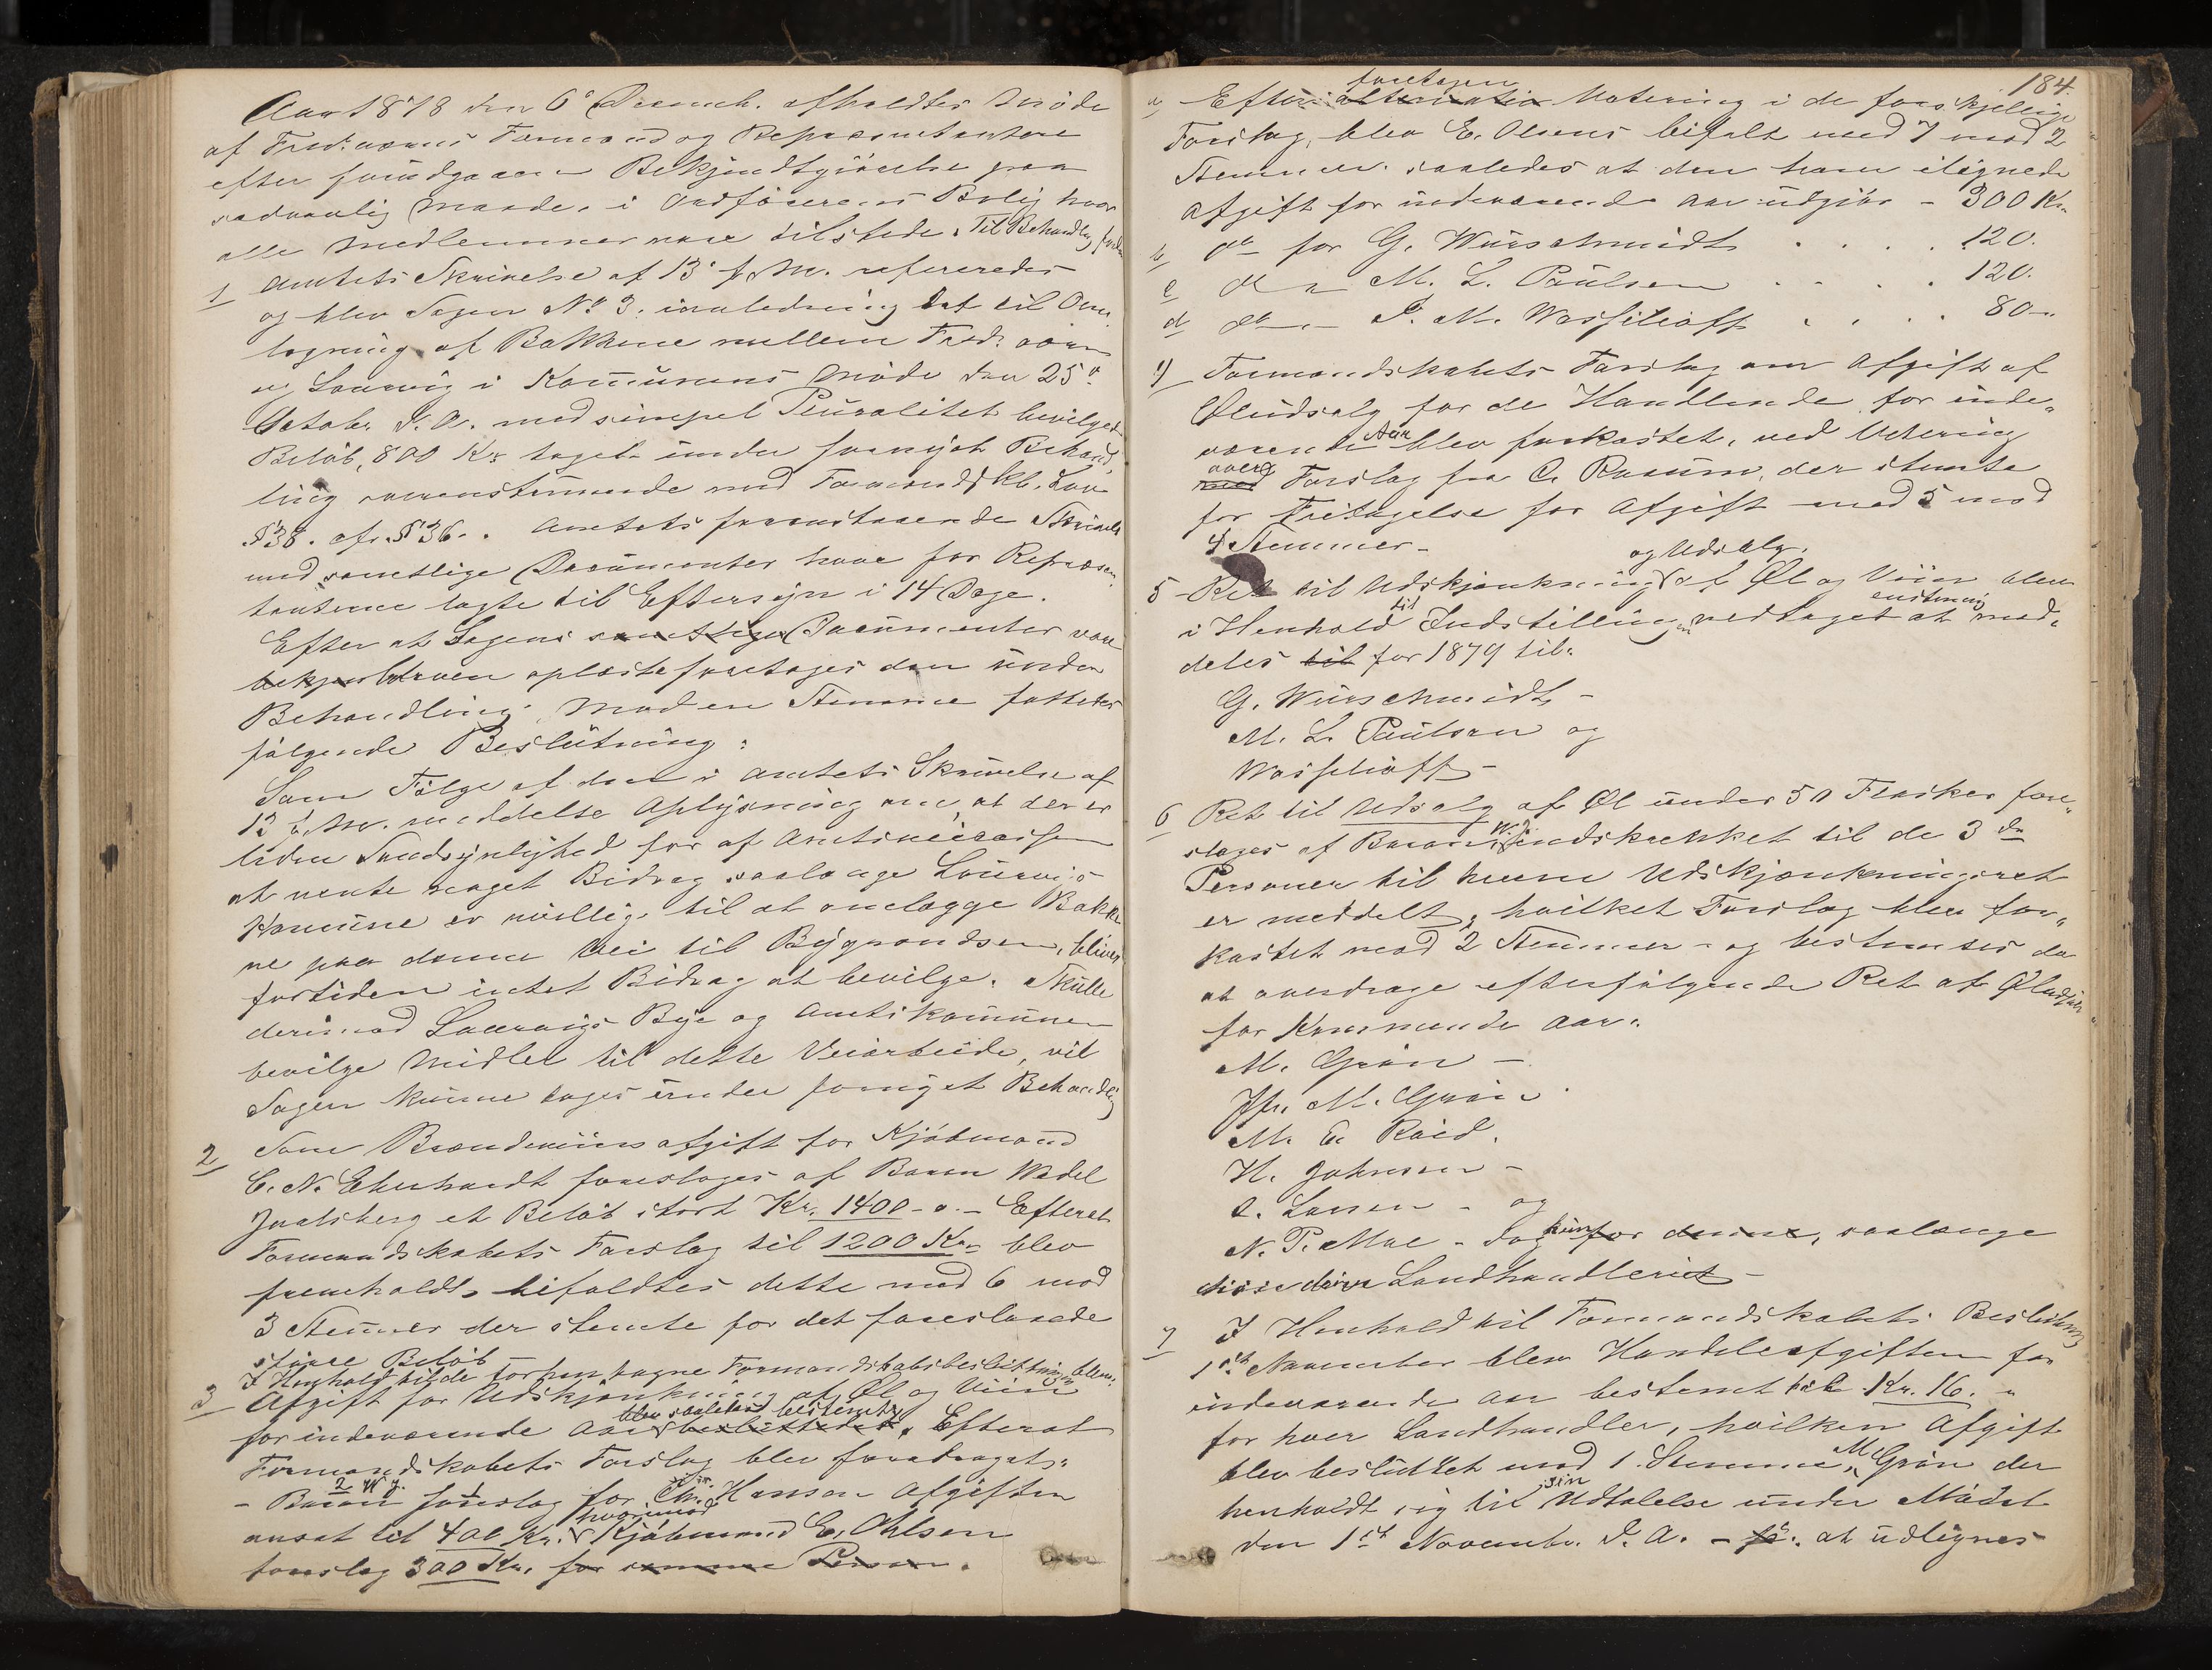 Aar 1878 den 6te Decemb. afholdtes Möde
af Fred:værns Formænd og Repræsentantere
efter foregaaende Bekjendtgjörelse paa
sædvanlig Maade, i Ordförerens Bolig hvor
alle Medlemmer vare tilstede. Til Behandlg
1 Amtets Skrivelse af 13de f. M. refereredes
og blev Sagen No 3. i anledning Det til Om-
lægning af Bakkene mellem Fred:værn
og Laurvig i Kommunens Möde den 25de
Octobr. d. A. med simpel Pluralitet bevilget
Belöb, 800 Kr. taget under fornyet Behand
ling overenstemmende med Formandskb. Lov
§ 38. cfr. § 36. . Amtets foranstaaende Skrivelse
med samtlige Documenter have for Repræsen
tanterne lagte til Eftersyn i 14 Dage.
Efter at Sagens samtlige Documenter vare
bleven oplæste foretoges den under
Behandling. Mod en Stemme fattedes
fölgende Beslutning:
Som Fölge af den i Amtets Skrivelse af
13 f. M. meddelte Oplysning om, at der er
liden Sandsynlighed for af Amtskommunen
at vente noget Bidrag saalænge Laurvigs
Komune er uvillig til at omlægge Bakke
ne paa denne Vei til Bygrændsen, bliver
fortiden intet Bidrag at bevilge. Skulle
derimod Laurvigs Bye og Amtskommunen
bevilge Midler til dette Veiarbeide, vil
Sagen kunne tages under fornyet Behandlg
2 Som Brændeviinsafgift for Kjöbmand
C. N. Eberhardt foresloges af Baron Wedel
Jarlsberg et Belöb stort Kr. 1400 - o. - Efterat
Formandskabets Forslag til 1200 Kr. blev
fremholdt, bifaldtes dette med 6 mod
3 Stemmer der stemte for det foreslaaede
större Belöb -
I Henhold til de forhen tagne Formandskabsbeslutninger blev
3 Afgift for Udskjænkning af Öl og Viin
blev saaledes bestemt
for indeværende Aar besluttedes. Efterat
Formandskabets Forslag blev foredraget.
- Baron W. J. foreslog for Chr. Hansen Afgiften
hvorimod
ansat til 400 Kr. Kjöbmand E. Ohlsen
foreslog 300 Kr. for samme Person.
184.
foretagen
a Efter alternativ Votering i de forskjellige
Forslag, blev E. Olsens bifalt med 7 mod 2
Stemmer. saaledes at den ham ilignede
Afgift for indeværende Aar udgjör - 300 Kr.
b do for G. Würschmidt . . . . 120.
c do " M. L. Paulsen . . . . 120.
d do - P. M. Wassilioff . . . 80 -
4) Formandskabets Forslag om Afgift af
Öludsalg for de Handlende for inde-
værende Aar blev forkastet, ved Votering
over
med Forslag fra C. Raeum, der stemte
for Fritagelse for Afgift med 5 mod
4 Stemmer -
og Udsalg.
5 Ret til Udskjænkning af Öl og Viin blev
til enstemmig
i Henhold Indstillingen vedtaget at med-
deles til for 1879 til:
G. Würschmidt -
M. L. Paulsen og
Wassilioff -
6 Ret til Udsalg af Öl under 50 Flasker fore-
sloges af Baron W. J. indskrænket til de 3 do
Personer til hvem Udskjænkningsret
er meddelt, hvilket Forslag blev for-
kastet mod 2 Stemmer - og bestemtes da
at overdrage efterfölgende Ret af Öludsalg
for Kommende Aar:
M. Grön -
Jfr. M. Grön
M. E. Röed.
H. Johnsen -
O. Larsen - og
N. P. Moe - dog kun for denne, saalænge
disse drive Landhandleriet -
7 I Henhold til Formandskabets Beslutning
1ste November blev Handelsafgiften for
indeværende Aar bestemt til Kr. 16. -
for hver Landhandler, hvilken Afgift
blev besluttet mod 1 Stemme, M. Grön der
henholdt sig til sin Udtalelse under Mödet
den 1ste Novembr. d. A. - at udlignes